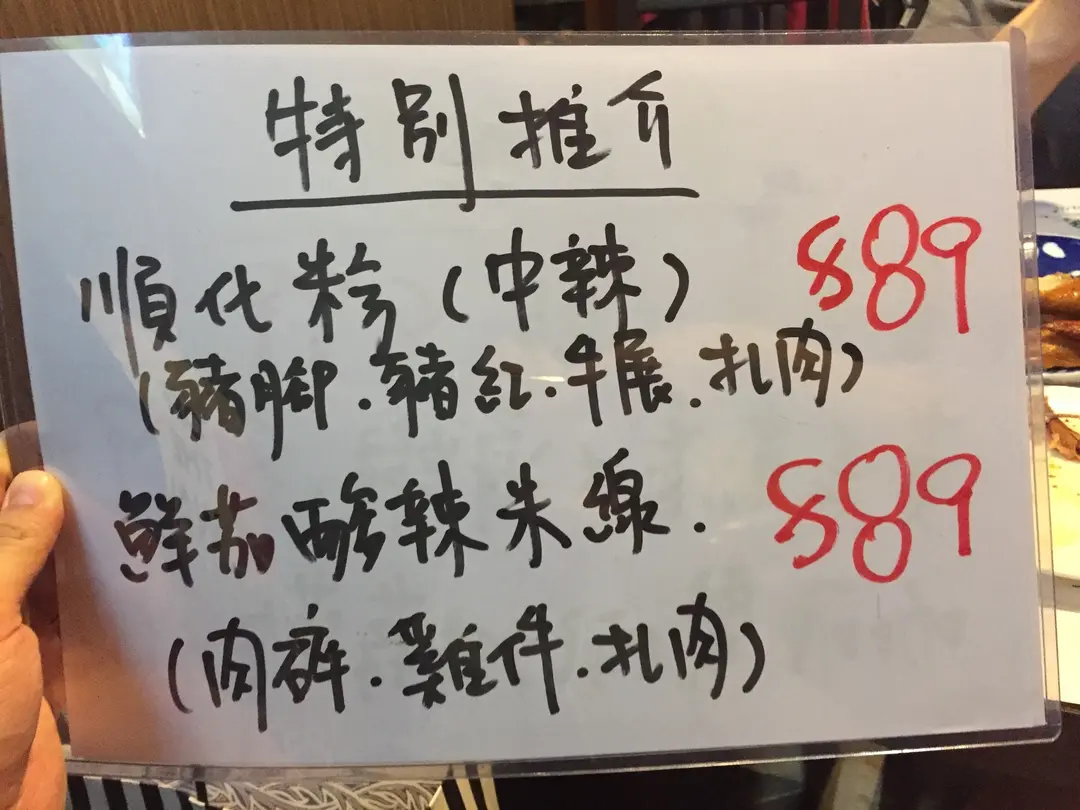 特別推介
順化粉(中辣) $89
(豬脚.豬紅.牛展.扎肉)
鮮茄酸辣米線. $89
(肉碎.雞件.扎肉)